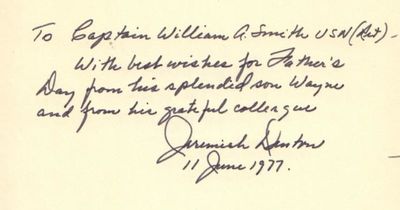 To Captain William A. Smith USN (Ret) -
With best wishes for Father's
Day from his splendid son Wayne
and from his grateful colleague
Jeremiah Denton
11 June 1977.